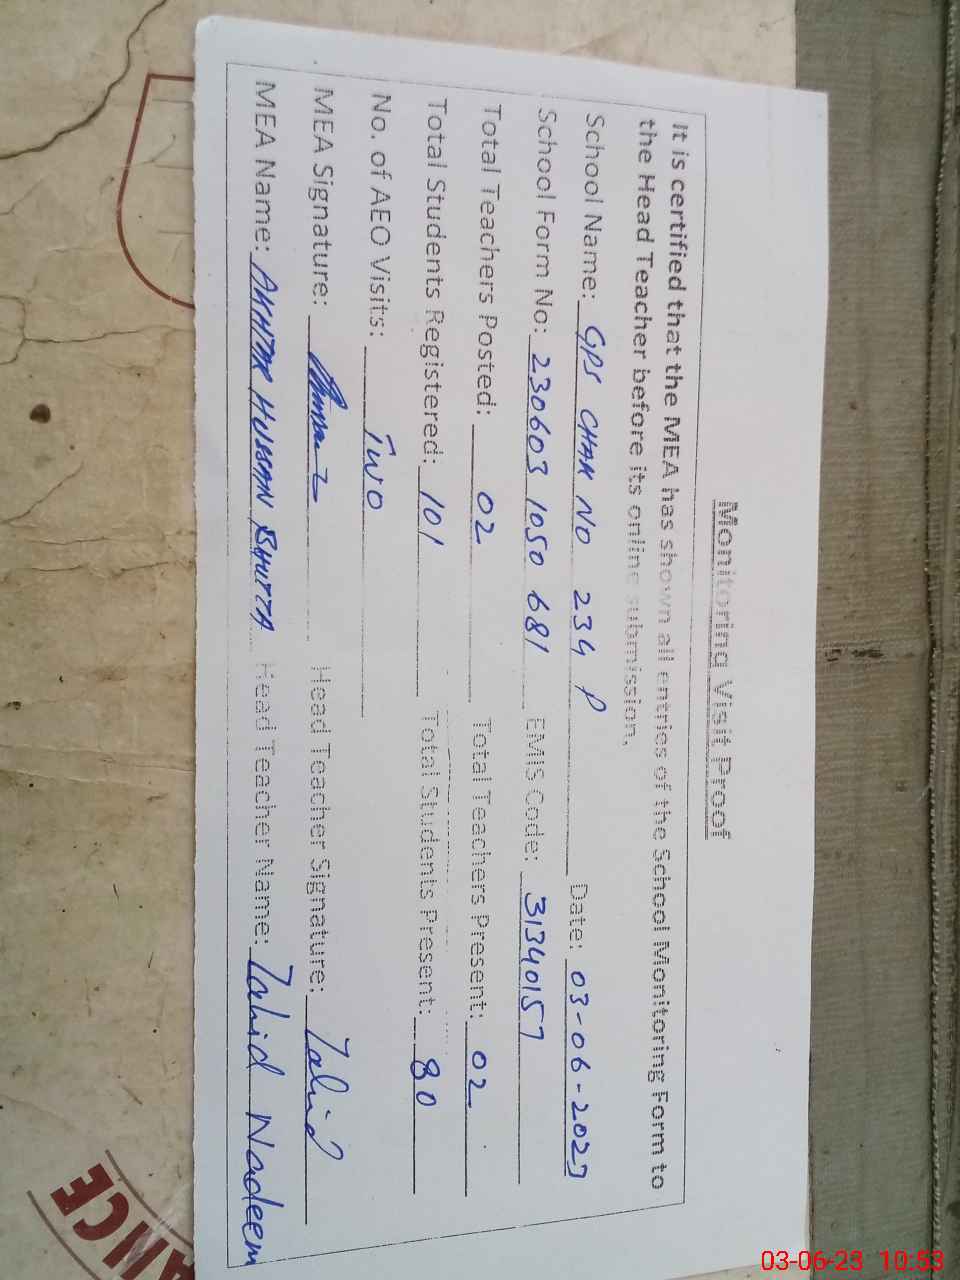 Monitoring Visit Proof
It is certified that the MEA has shown all entries of the School Monitoring Form to
the Head Teacher before its online submission.
School Name: GPS CHAK NO 234 P Date: 03-06-2023
School Form No: 230603 1050 681 EMIS Code: 31340157
Total Teachers Posted: 02 Total Teachers Present: 02
Total Students Registered: 101 Total Students Present: 80
No. of AEO Visits: Two
MEA Signature: Head Teacher Signature: Zahid
MEA Name: AKHTAR HUSSAN BHUTTA Head Teacher Name: Zahid Nadeem
ANCE
03-06-23 10:53